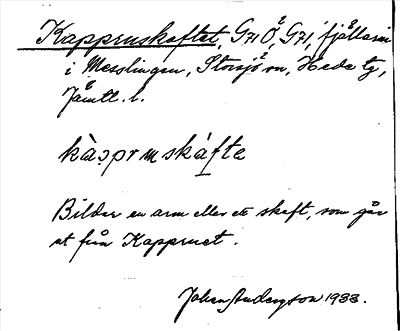 Kappruskaftet, G71 Ö, G71, fjällarm
i Messlingen, Storsjö sn, Hede tg,
Jämtl. l.
kàɔprɯskáfte
Bildar en arm eller ett skaft, som går
ut från Kappruet.
Johan Anderzson 1933.